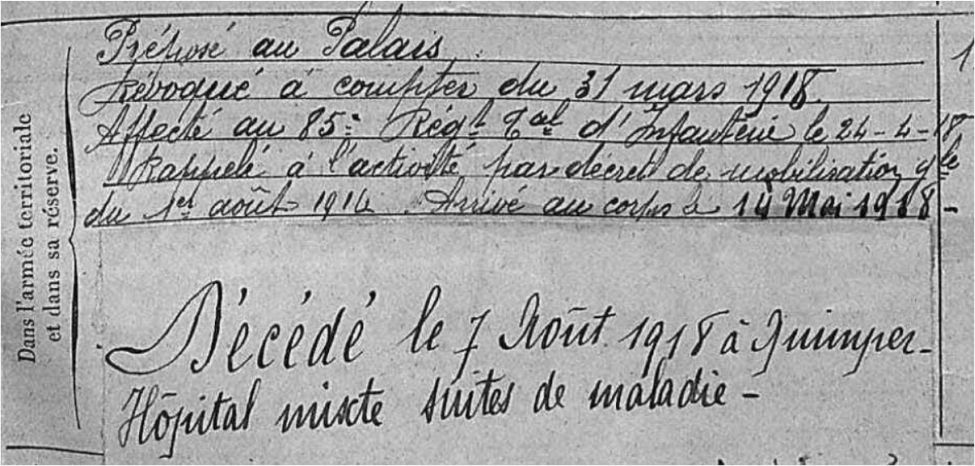 Dans l'armée territoriale
et dans sa réserve.
Préposé au Palais
Révoqué à compter du 31 mars 1918.
Affecté au 85e Régt Tal d'Infanterie le 24-4-18
Rappelé à l'activité par décret de mobilisation gle
du 1er août 1914. Arrivé au corps le 14 Mai 1918 -
Décédé le 7 Août 1918 à Quimper-
Hôpital mixte suites de maladie -